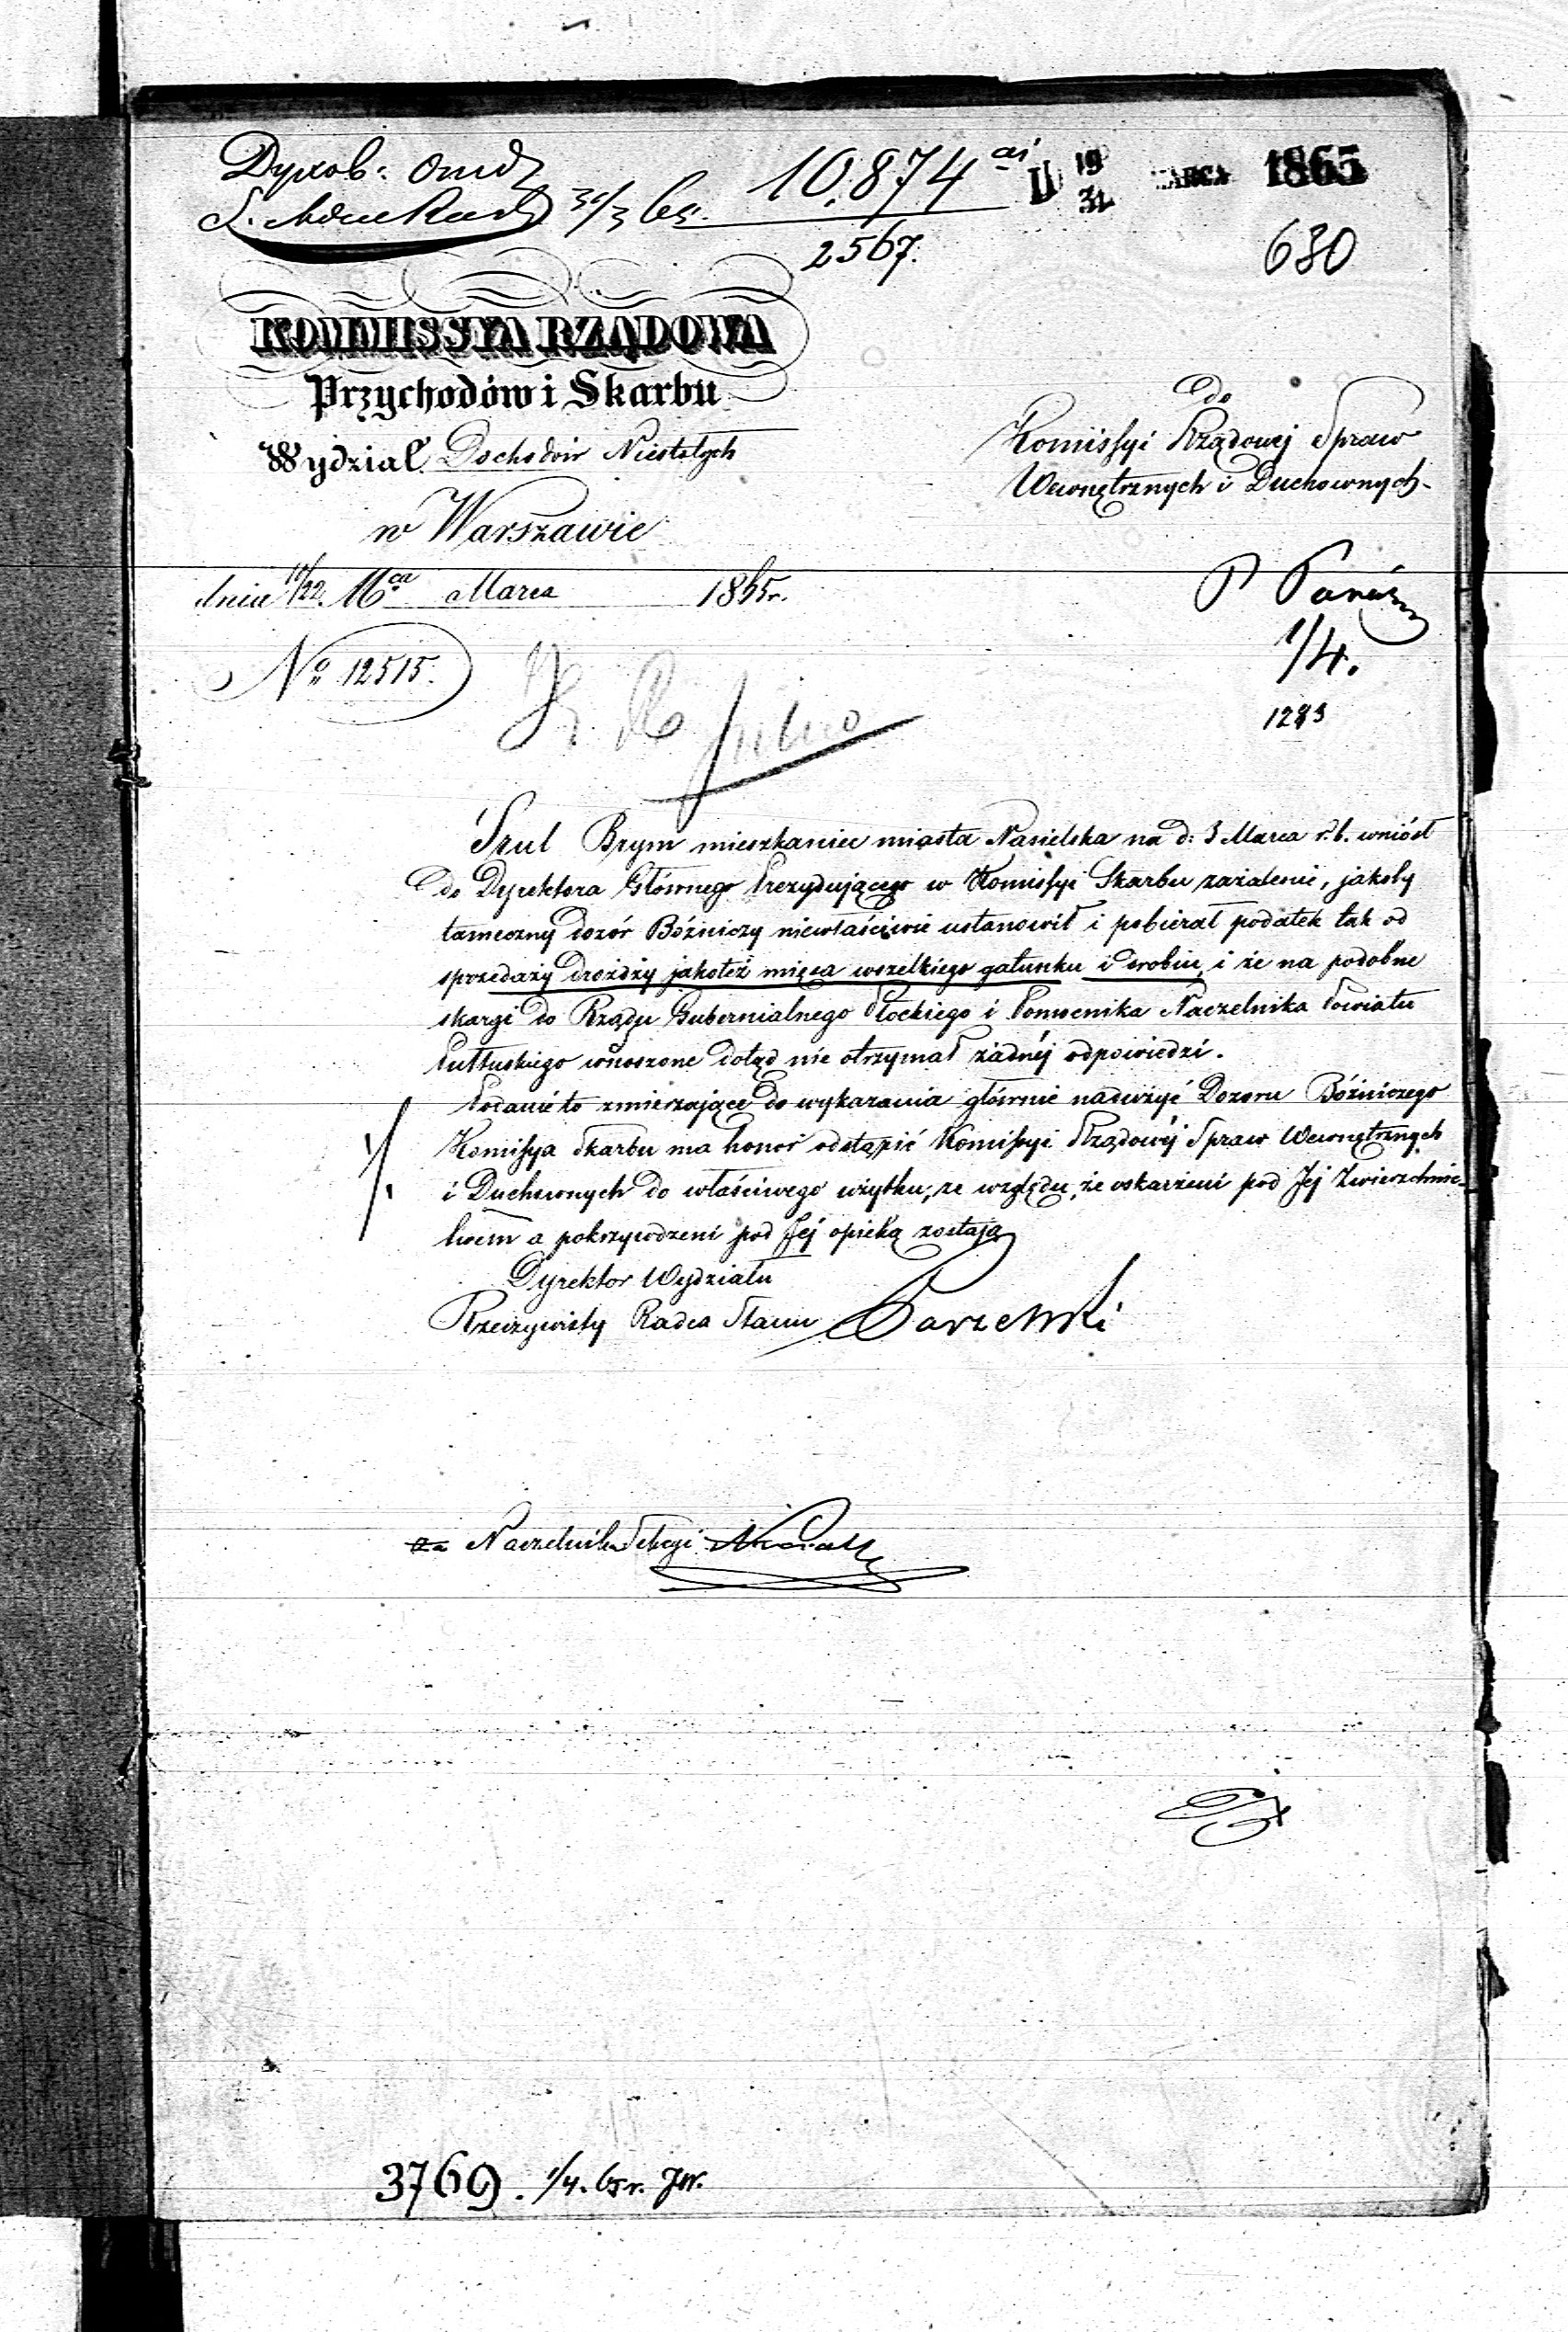 10,874
19/31 MARCA 1865
2567.
630
KOMMISSYA RZĄDOWA
Przychodów i Skarbu
Wydział Dochodów Niestałych
w Warszawie
dnia 10/22 Mca Marca 1865r.
No 12515.
do
Komissyi Rządowej Spraw
Wewnętrznych i Duchownych
1/4.
1283
Szul Brym mieszkaniec miasta Nasielska na d: 3 Marca r. b. wniósł
do Dyrektora Głównego Prezydującego w Komissyi Skarbu zażalenie, jakoby
tameczny dozór Bóżniczy niewłaściwie ustanowił i pobierał podatek tak od
sprzedaży drożdży jakoteż mięsa wszelkiego gatunku i drobiu, i że na podobne
skargi do Rządu Gubernialnego Płockiego i Pomocnika Naczelnika Powiatu
Pułtuskiego wnoszone dotąd nie otrzymał żadnéj odpowiedzi.
Podanie to zmierzające do wykazania głównie nadużyć Dozoru Bóżniczego
Komissya Skarbu ma honor odstąpić Komissyi Rządowéj Spraw Wewnętrznych
i Duchownych do właściwego użytku, ze względu, że oskarżeni pod Jej Zwierzchnic-
twem a pokrzywdzeni pod Jej opieką zostają
Dyrektor Wydziału
Rzeczywisty Radca Stanu
za Naczelnika Sekcyi
3769. 1/4. 65 r. JW.